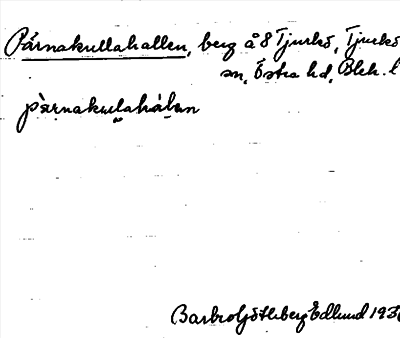 Pärnakullahallen, berg å 8 Tjurkö, Tjurkö
sn, Östra hd, Blek. l
pàrnakullahálen
Barbro Götherberg Edlund 193